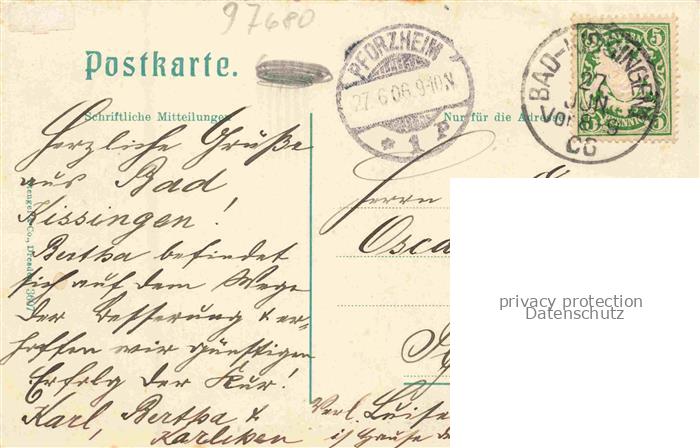 97680
Postkarte.
PFORZHEIM
27.6.06.9-10N
* 1 P
BAD-KISSINGEN
27
JUN
Vor 8-9
06
5
5
Schriftliche Mitteilungen
Nur für die Adresse
Herzliche Grüße
aus Bad
Kissingen!
Bertha befindet
sich auf dem Wege
der Besserung & er-
hoffen wir günstigen
Erfolg der Kur!
Karl, Bertha &
Karlchen
Herrn
Osca
privacy protection
Datenschutz
Luise